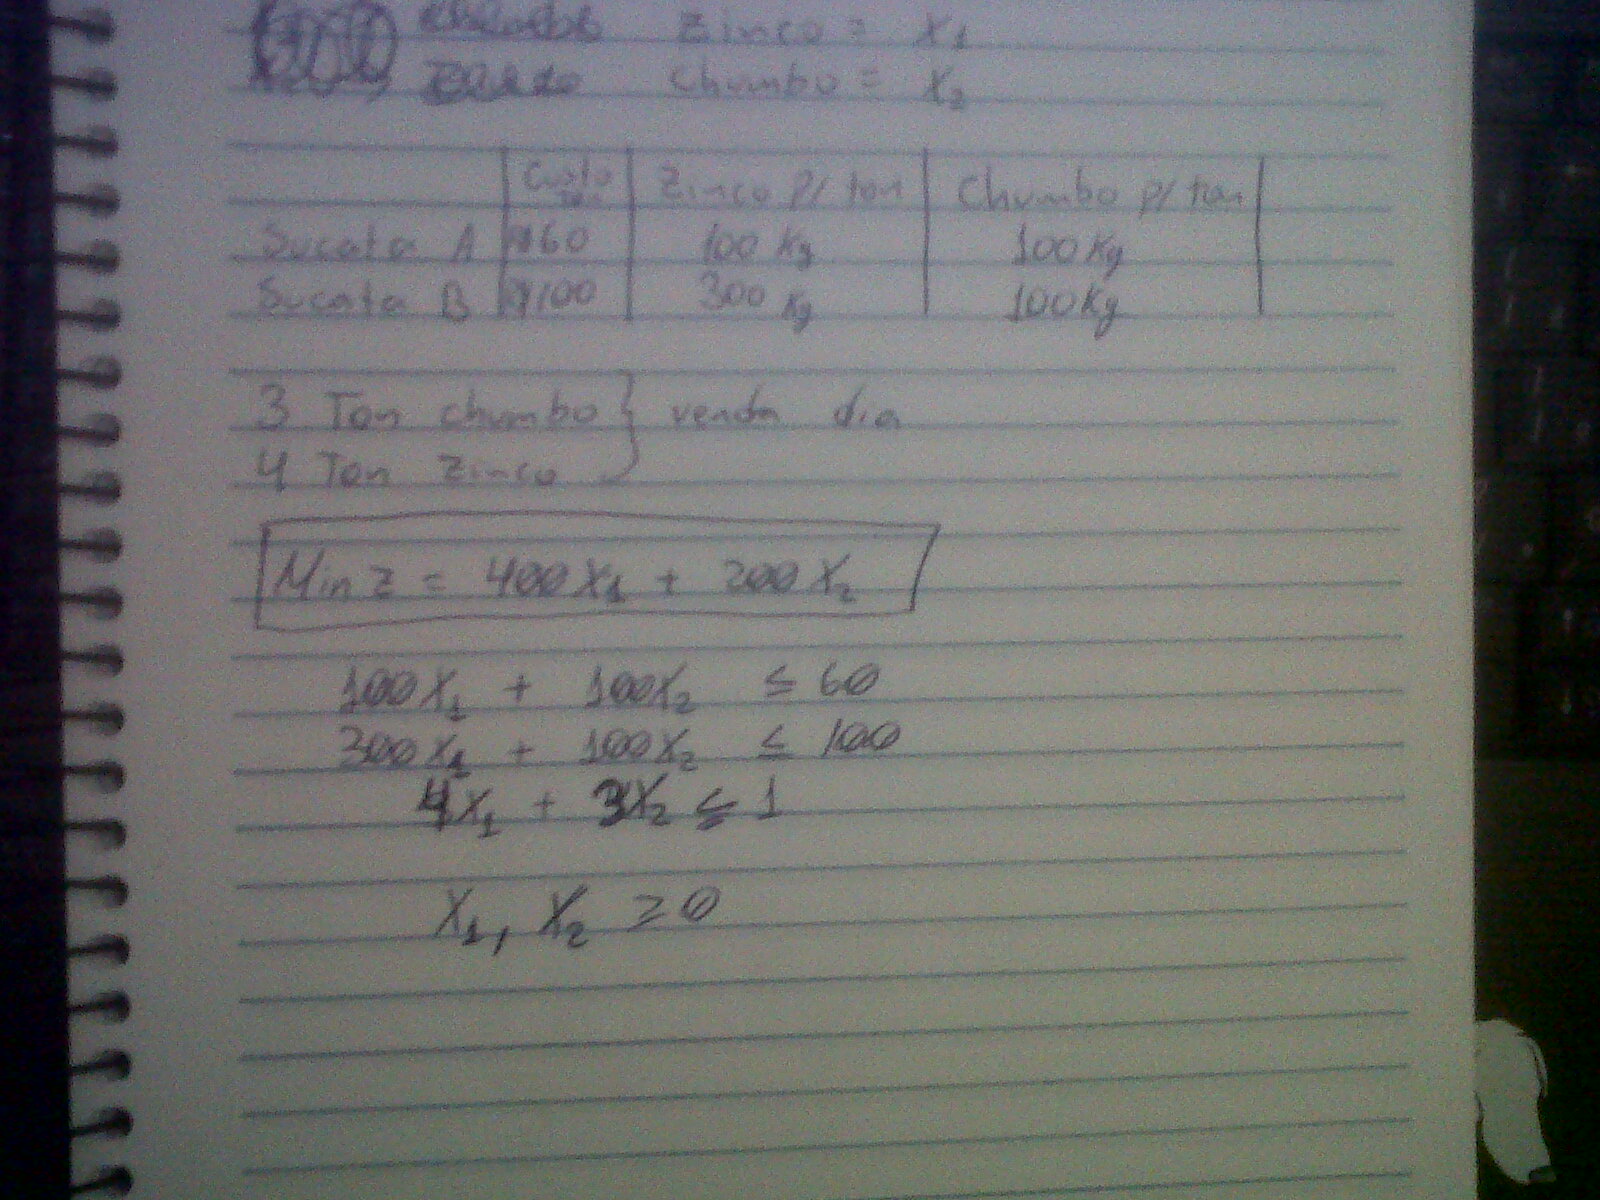 Zinco = X₁
Chumbo = X₂
Custo Zinco p/ ton Chumbo p/ ton
Sucata A 60 100 Kg 100 Kg
Sucata B 100 300 Kg 100 Kg
3 Ton chumbo } venda dia
4 Ton Zinco
Min Z = 400X₁ + 200X₂
100X₁ + 100X₂ ≤ 60
300X₁ + 100X₂ ≤ 100
4X₁ + 3X₂ ≤ 1
X₁, X₂ ≥ 0